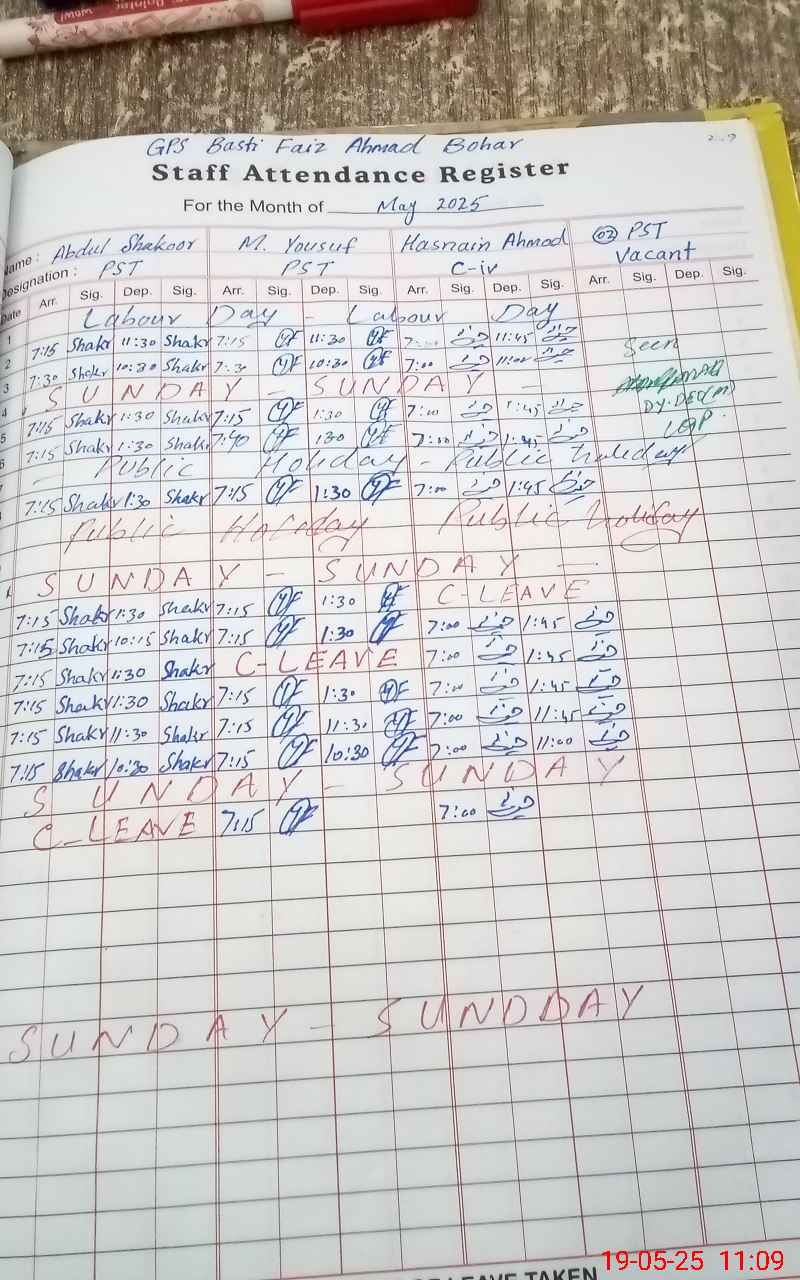 GPS Basti Faiz Ahmad Bohar
Staff Attendance Register
For the Month of May 2025
Name : Abdul Shakoor M. Yousuf Hasnain Ahmad 02 PST
Designation : PST PST C-iv Vacant
Date Arr. Sig. Dep. Sig. Arr. Sig. Dep. Sig. Arr. Sig. Dep. Sig. Arr. Sig. Dep. Sig.
1 Labour Day - Labour Day
2 7:15 Shakr 11:30 Shakr 7:15 11:30 11:45 Seen
3 7:30 Shakr 10:30 Shakr 7:30 10:30 7:00 11:00
4 SUNDAY - SUNDAY -
5 7:15 Shakr 1:30 Shakr 7:15 1:30 7:00 1:45 DY.DEO(M)
6 7:15 Shakr 1:30 Shakr 7:40 130 7:00 1:45
7 - Public Holiday - Public holiday
7:15 Shakr 1:30 Shakr 7:15 1:30 7:00 1:45
Public Holiday Public holiday
SUNDAY - SUNDAY -
7:15 Shakr 1:30 Shakr 7:15 1:30 C-LEAVE
7:15 Shakr 10:15 Shakr 7:15 1:30 7:00 1:45
7:15 Shakr 1:30 Shakr C-LEAVE 7:00 1:45
7:15 Shakr 1:30 Shakr 7:15 1:30 7:00 1:45
7:15 Shakr 11:30 Shakr 7:15 11:30 7:00 11:45
7:15 Shakr 10:30 Shakr 7:15 10:30 7:00 11:00
SUNDAY - SUNDAY
C-LEAVE 7:15 7:00
SUNDAY - SUNDDAY
LEAVE TAKEN
19-05-25 11:09